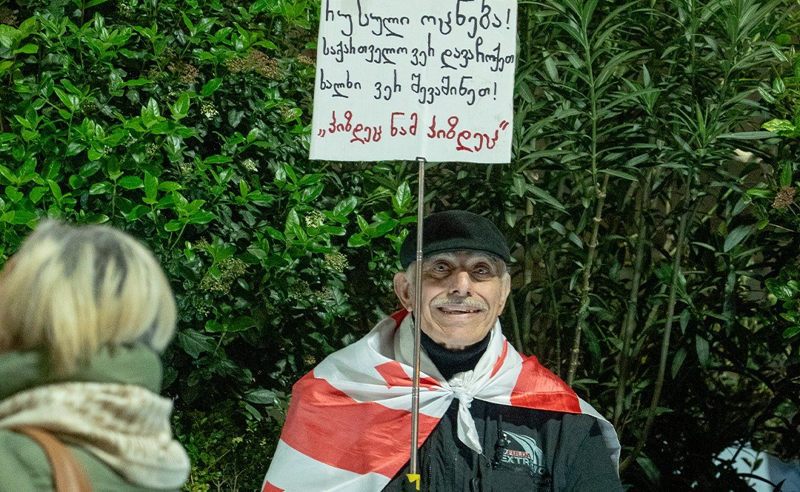 რუსული ოცნება!
საქართველო ვერ დავაჩოქეთ
ხალხი ვერ შევაშინეთ!
„პიზდეც ნამ პიზდეც“
EXTR